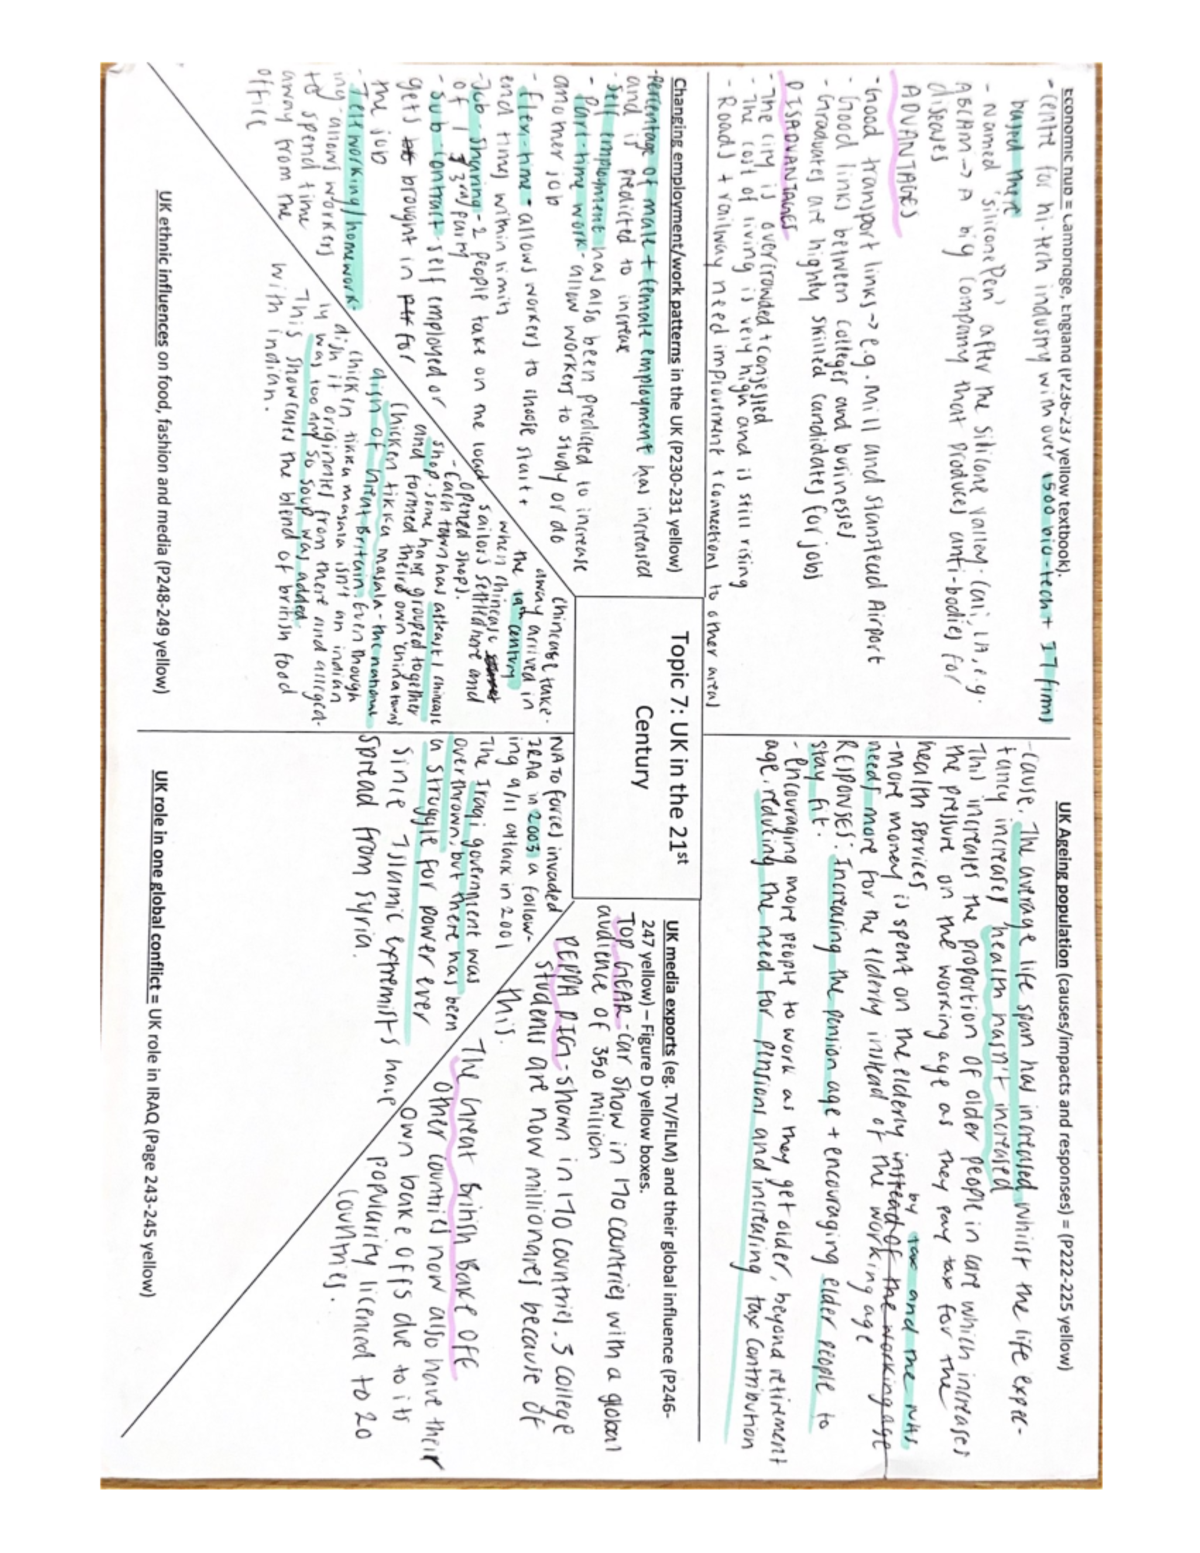 Economic hub = Cambridge, England (P236-237 yellow textbook).
-Centre for hi-tech industry with over 1500 bio-tech + IT firms
based there
- Named 'silicone Pen' after the silicone valley. (ai, IA, e.g.
ABCAM → A big company that produces anti-bodies for
diseases
ADVANTAGES
-Good transport links → e.g. Mill and Stanstead Airport
-Good links between colleges and businesses
-Graduates are highly skilled candidates for jobs
DISADVANTAGES
-The city is overcrowded + congested
-The cost of living is very high and is still rising
-Roads + railway need improvement + connections to other areas
UK Ageing population (causes/impacts and responses) = (P222-225 yellow)
-Cause. The average life span has increased whilst the life expec-
tancy increases health hasn't increased
This increases the proportion of older people in care which increases
the pressure on the working age as they pay tax for the
health services
by tax and the NHS
-more money is spent on the elderly instead of the working age
needs more for the elderly instead of the working age
RESPONSES: Increasing the pension age + encouraging elder people to
stay fit.
-Encouraging more people to work as they get older, beyond retirement
age, reducing the need for pensions and increasing tax contribution
Changing employment/work patterns in the UK (P230-231 yellow)
-Percentage of male + female employment has increased
and is predicted to increase
-Self employment has also been predicted to increase
- Part-time work - allow workers to study or do
another job
- flexi-time - allows workers to choose start +
end times within limits
-Job-sharing - 2 people take on the load
of 1 3rd party
-Sub contract-self employed or
gets brought in for
the job
-Teleworking/homework-
ing-allows workers
to spend time
away from the
office
Topic 7: UK in the 21st
Century
Chinease take-
away arrived in
the 19th century
when chinease
sailors settled here and
opened shops.
-Each town has atleast 1 chinease
shop. some have grouped together
and formed their own 'chinatowns'
Chicken tikka masala - the national
dish of Great Britain even though
chicken tikka masala isn't an indian
dish it originates from there and alleged-
ly was too dry so soup was added
This showcases the blend of british food
with indian.
UK ethnic influences on food, fashion and media (P248-249 yellow)
UK media exports (eg. TV/FILM) and their global influence (P246-
247 yellow) – Figure D yellow boxes.
TOP GEAR-car show in 170 countries with a global
audience of 350 million
PEPPA PIG-shown in 170 countries. 3 college
students are now millionares because of
this.
The Great British Bake Off
Other countries now also have their
own bake offs due to its
popularity licenced to 20
countries.
NATO forces invaded
IRAQ in 2003 a follow-
ing 9/11 attack in 2001
The Iraqi government was
overthrown, but there has been
a struggle for power ever
since Islamic extremists have
spread from Syria.
UK role in one global conflict = UK role in IRAQ (Page 243-245 yellow)